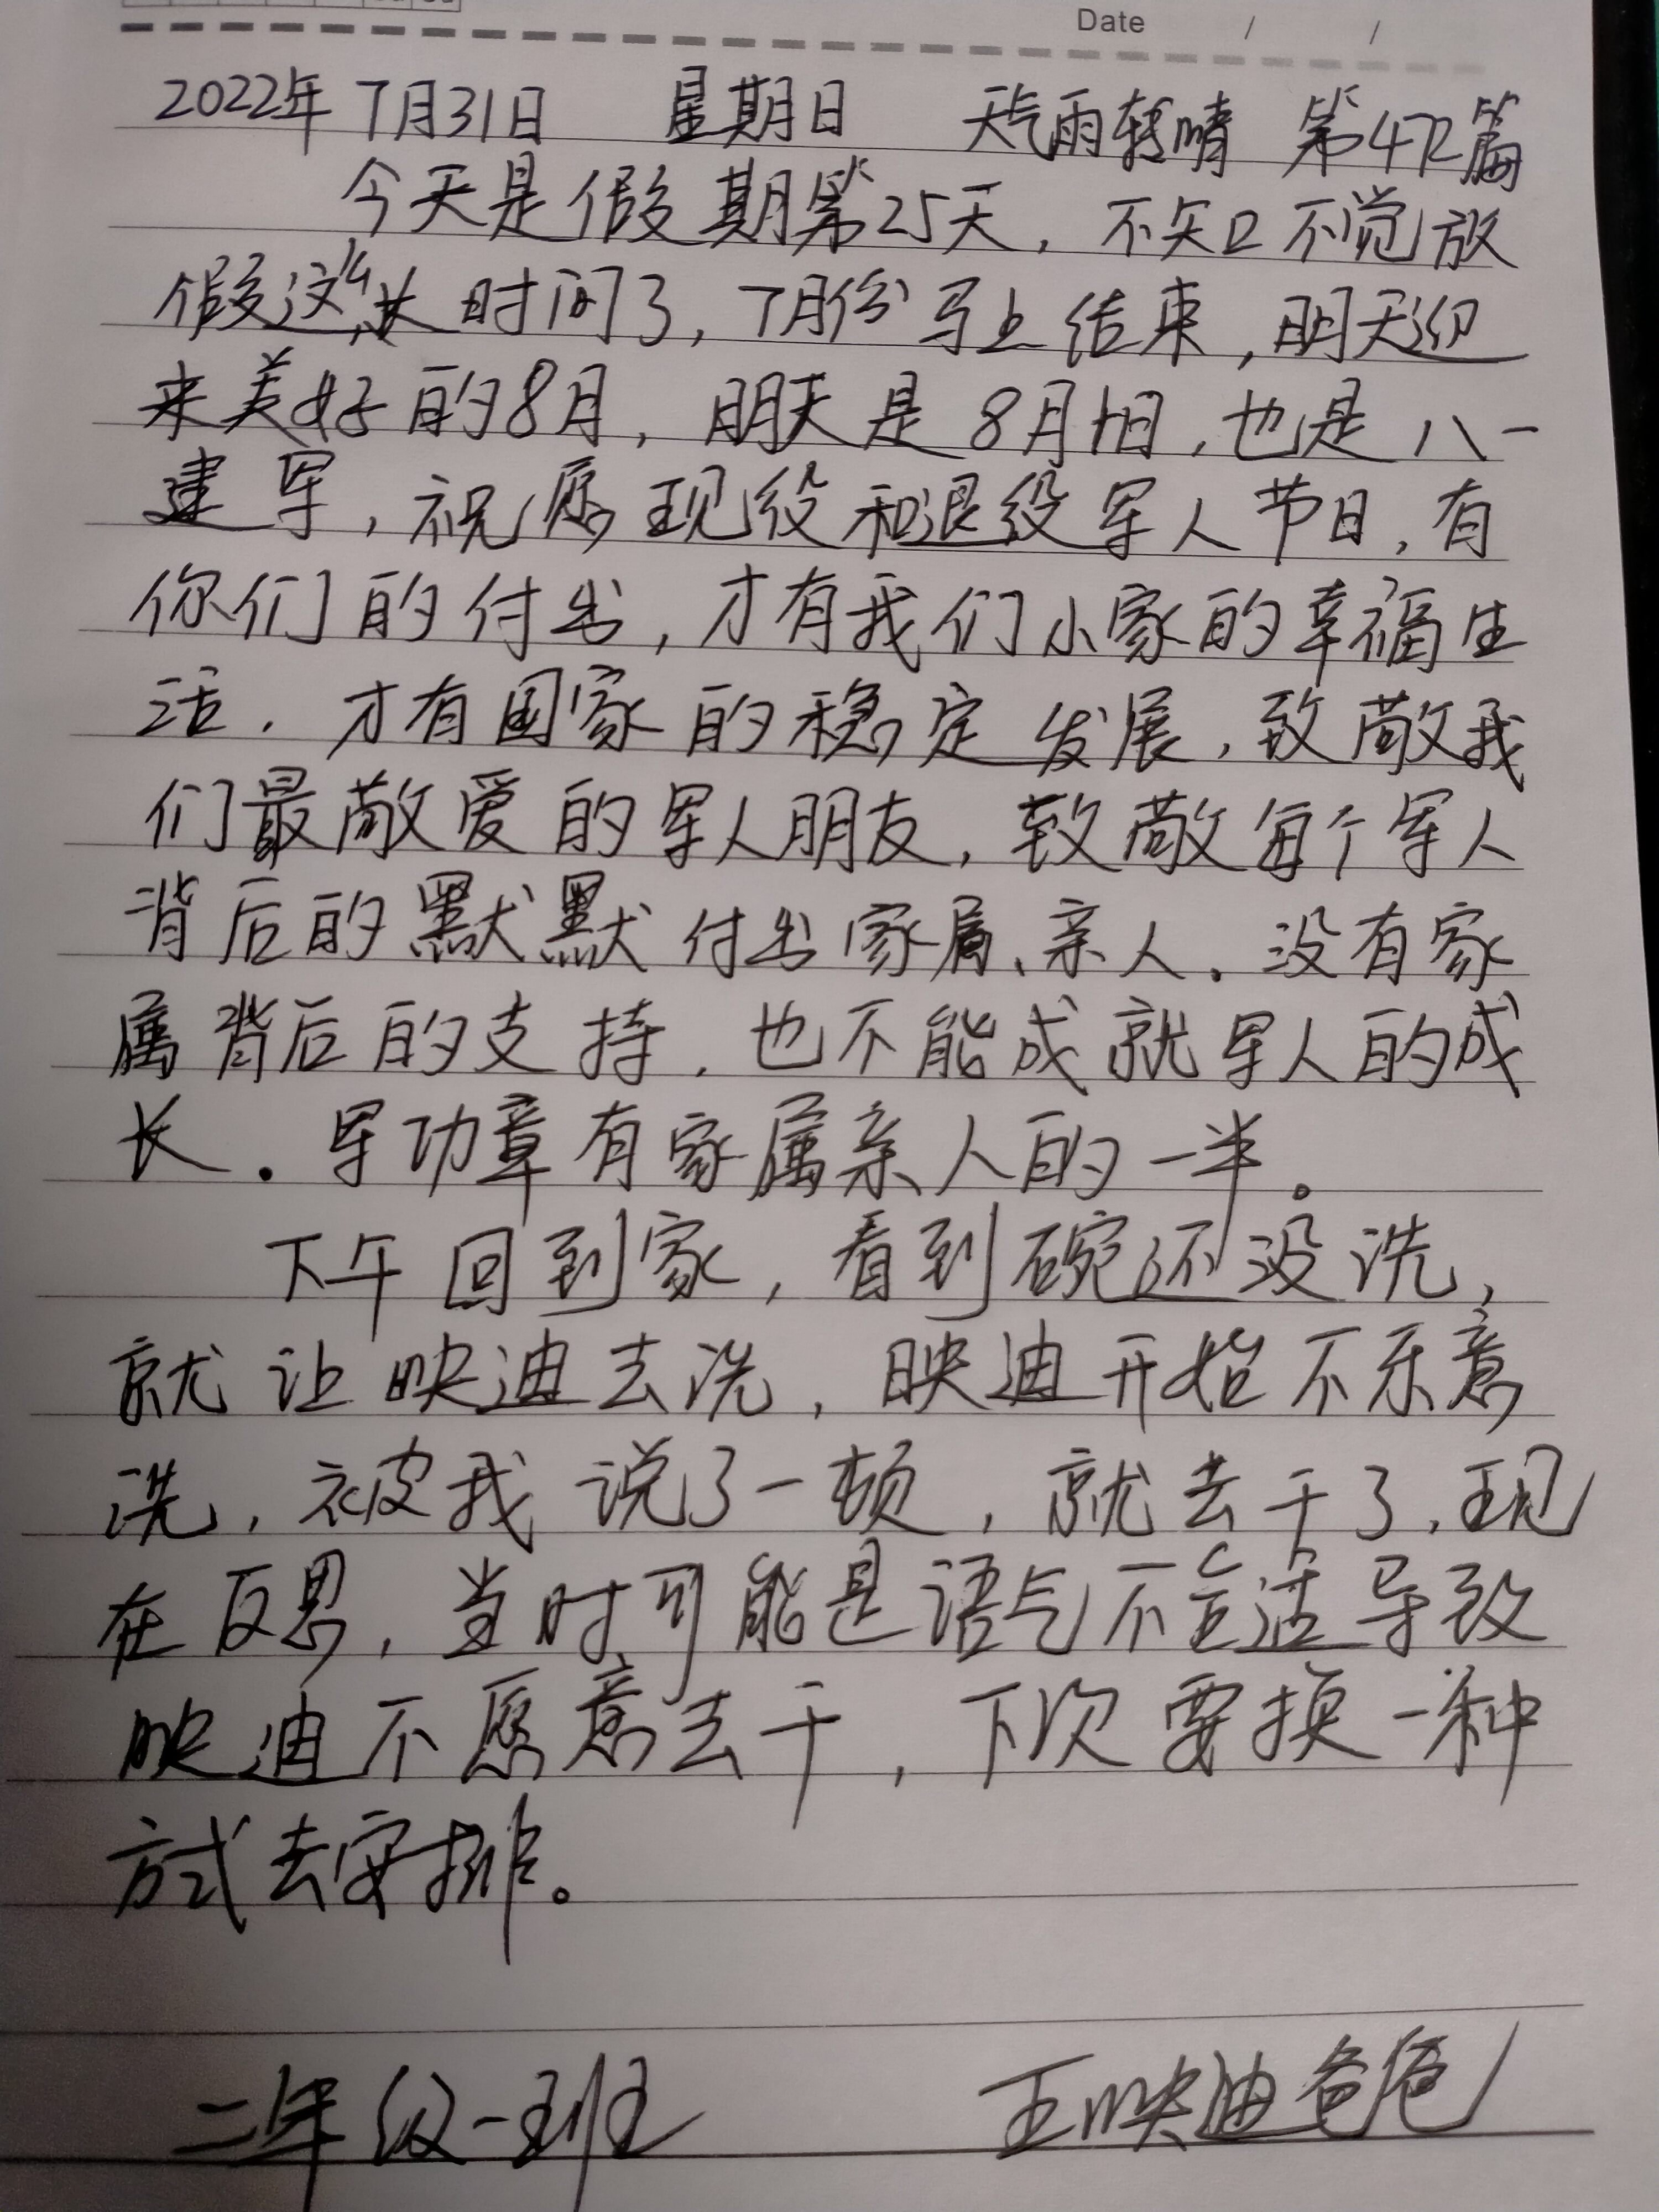 Date / /
2022年7月31日 星期日 天气雨转晴 第472篇
今天是假期第25天，不知不觉放
假这么长时间了，7月份马上结束，明天迎
来美好的8月，明天是8月1日，也是八一
建军，祝愿现役和退役军人节日，有
你们的付出，才有我们小家的幸福生
活．才有国家的稳定发展，致敬我
们最敬爱的军人朋友，致敬每个军人
背后的默默付出家属、亲人．没有家
属背后的支持．也不能成就军人的成
长．军功章有家属亲人的一半。
下午回到家，看到碗还没洗，
就让映迪去洗，映迪开始不乐意
洗，被我说了一顿，就去干了．现
在反思，当时可能是语气不合适导致
映迪不愿意去干，下次要换一种
方式去安排。
二年级一班 王映迪爸爸